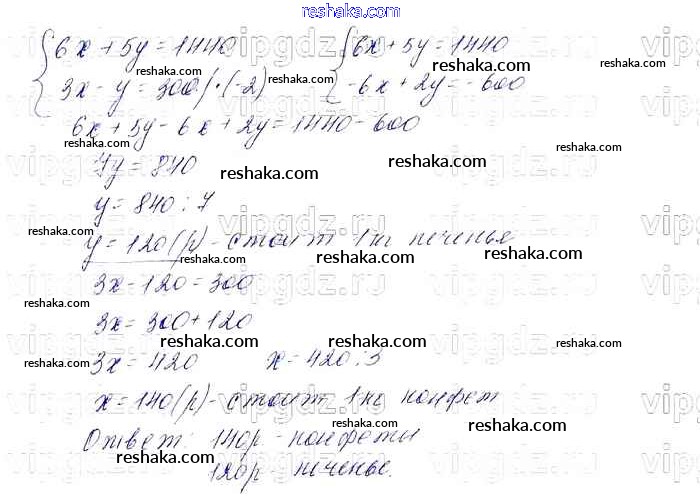 reshaka.com
{6x + 5y = 1440 {6x + 5y = 1440
reshaka.com reshaka.com
{3x - y = 300 | · (-2) {-6x + 2y = -600
reshaka.com reshaka.com
6x + 5y - 6x + 2y = 1440 - 600
reshaka.com
7y = 840
reshaka.com reshaka.com
y = 840 : 7
reshaka.com
y = 120 (р) - стоит 1 кг печенья
reshaka.com reshaka.com
3x - 120 = 300
reshaka.com reshaka.com
3x = 300 + 120
reshaka.com reshaka.com
3x = 420 x = 420 : 3
reshaka.com reshaka.com
x = 140 (р) - стоит 1 кг конфет
reshaka.com reshaka.com
Ответ: 140р - конфеты
reshaka.com reshaka.com
120р - печенье.
vipgdz.ru